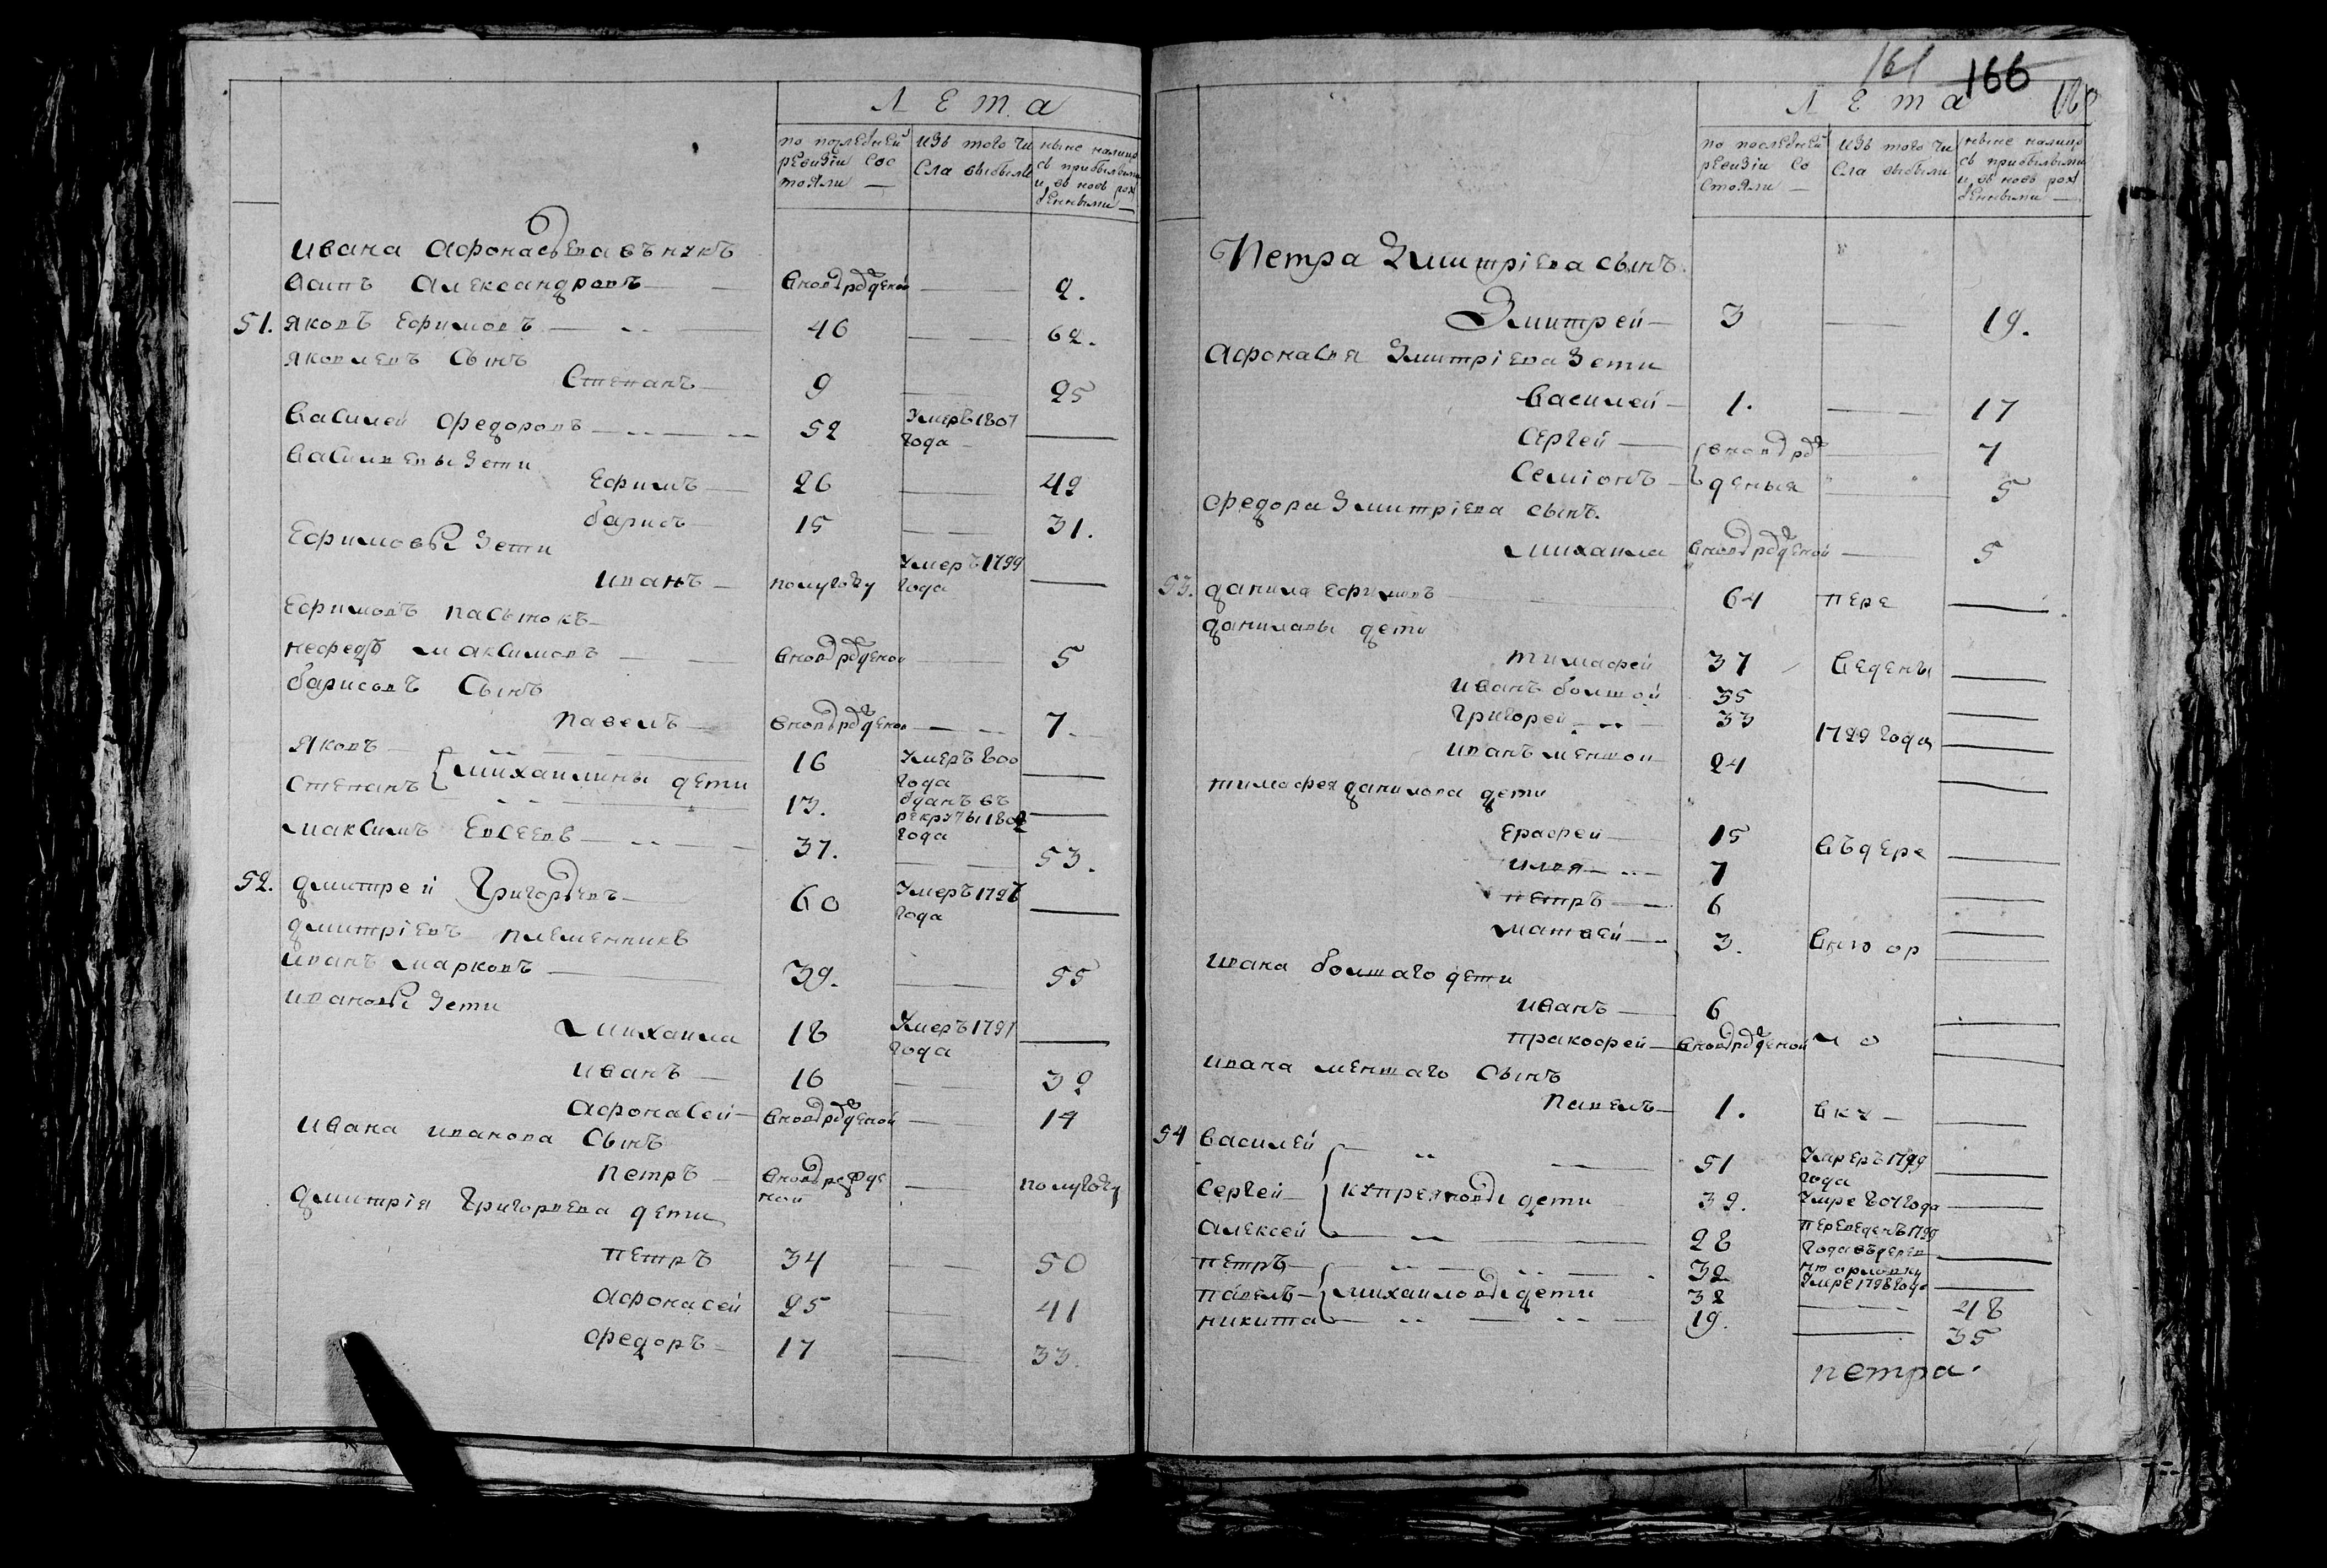 Л е т а
по последней ревизiи состояли — изъ того числа выбыли ныне налицо съ прибылыми и въ новь рожденными —
Ивана Афонасьева внукъ
Осипъ Александровъ — вновь рожденой — 2.
51. Яковъ Ефимовъ — 46 — 62.
Яковлевъ сынъ
Степанъ — 9 — 25
Василей Федоровъ — 52 Умеръ 1807 года —
Васильевы дети
Ефимъ — 26 — 42
Барисъ 15 — 31.
Ефимовы дети
Иванъ — полугоду Умеръ 1799 года —
Ефимовъ пасынокъ
Нефедъ Максимовъ — вновь рожденой — 5
Барисовъ сынъ
Павелъ — вновь рожденой — 7.
Яковъ — 16 Умеръ 800 года —
Степанъ { Михаилины дети 13. Отданъ въ рекруты 1802 года —
Максимъ Евсеевъ — 37. — 53.
52. Дмитрей Григорьевъ — 60 Умеръ 1796 года —
Дмитрiевъ племенникъ
Иванъ Марковъ — 39. — 55
Ивановы дети
Михаила 18 Умеръ 1797 года —
Иванъ — 16 — 32
Афонасей — вновь рожденой — 14
Ивана Иванова сынъ
Петръ — вновь рожденой — полугоду
Дмитрiя Григорьева дети
Петръ 34 — 50
Афонасей 25 — 41
Федоръ — 17 — 33.
161 166
Л е т а
по последней ревизiи состояли — изъ того числа выбыли ныне налицо съ прибылыми и въ новь рожденными —
Петра Дмитрiева сынъ
Дмитрей — 3 — 19.
Афонасья Дмитрiева дети
Василей — 1. — 17
Сергей — { вновь рож — 7
Семiонъ — деныя — 5
Федора Дмитрiева сынъ.
Михаила вновь рожденой — 5
53. Данила Ефимовъ 64 пере —
Даниловы дети
Тимофей 37 ведены —
Иванъ болшой 35 —
Григорей — 33 1799 года —
Иванъ меншои 24 —
Тимофея Данилова дети
Ерофей — 15 въ дере —
Илья — 7 —
Петръ — 6 —
Матвей — 3. вню ор —
Ивана болшаго дети
Иванъ — 6 —
Пракофей — вновь рожденой ло —
Ивана меншаго сынъ
Павелъ — 1. вку —
54 Василей — 51 Умеръ 1799 года —
Сергей — { Купреяновы дети 39. Умре 807 года —
Алексей — 28 Переведенъ 1799 года въ деревню Орловку —
Петръ — 32 Умре 1798 года —
Павелъ — { Михаиловы дети 32 — 48
Никита — 19. — 35
Петра.